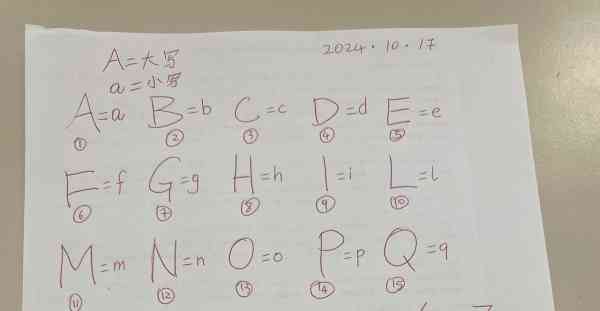 A=大写 2024·10·17
a=小写
A=a B=b C=c D=d E=e
① ② ③ ④ ⑤
F=f G=g H=h I=i L=l
⑥ ⑦ ⑧ ⑨ ⑩
M=m N=n O=o P=p Q=q
⑪ ⑫ ⑬ ⑭ ⑮